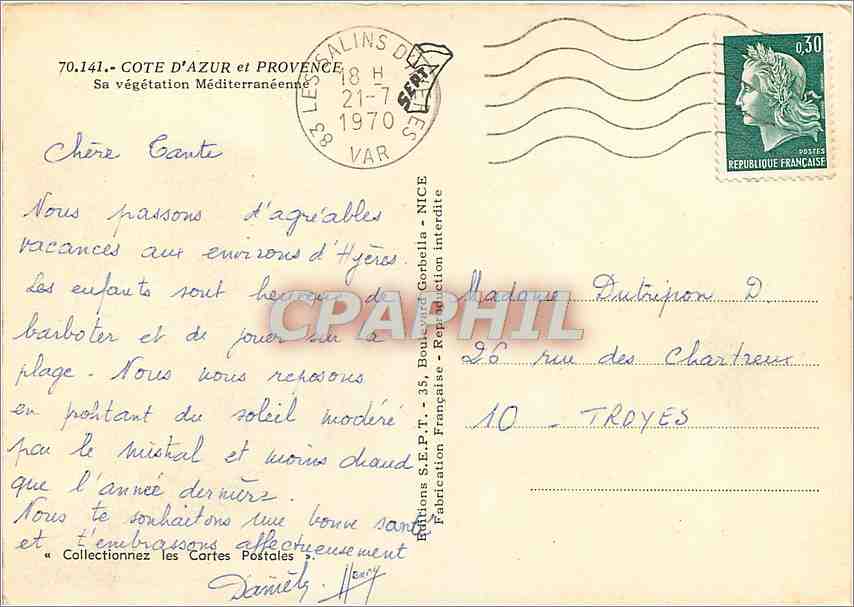 70.141.- COTE D'AZUR et PROVENCE
Sa végétation Méditerranéenne
83 LES SALINS D'HYERES
18 H
21-7
1970
VAR
SEPT
0,30
POSTES
REPUBLIQUE FRANÇAISE
Chère Tante
Nous passons d'agréables
vacances aux environs d'Hyères.
Les enfants sont heureux de
barboter et de jouer sur la
plage. Nous nous reposons
en profitant du soleil modéré
par le mistral et moins chaud
que l'année dernière.
Nous te souhaitons une bonne santé
et t'embrassons affectueusement
Danièle. Henry
« Collectionnez les Cartes Postales ».
Editions S.E.P.T. - 35, Boulevard Gorbella - NICE
Fabrication Française - Reproduction interdite
CPAPHIL
Madame Dutripon D.
26 rue des Chartreux
10 - TROYES